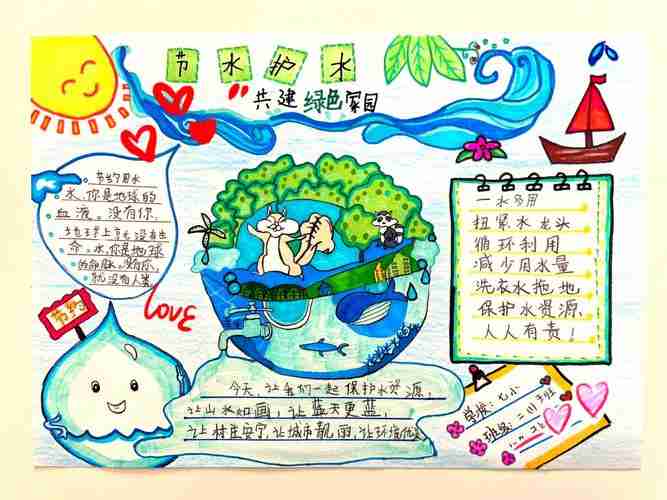 节水护水
共建绿色家园
节约用水
水,你是地球的
血液。没有你,
地球上就没有生
命。水,你是地球
的命脉。没有你,
就没有人类。
节约
LOVE
一水多用
扭紧水龙头
循环利用
减少用水量
洗衣水拖地
保护水资源,
人人有责!
今天,让我们一起保护水资源,
让山水如画,让蓝天更蓝,
让村庄安宁,让城市靓丽,让环境优美
学校:
班级: